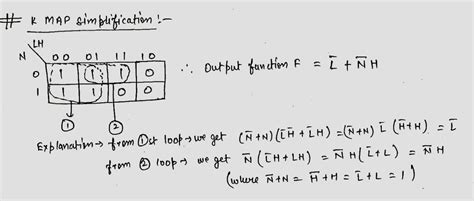 # K MAP simplification :-
LH
N 00 01 11 10
0 1 1 1 0
1 1 1 0 0
∴ Output function F = L̅ + N̅H
① ②
Explanation → from ①st loop → we get (N̅+N)(L̅H̅+L̅H) = (N̅+N) L̅ (H̅+H) = L̅
from ② loop → we get N̅ (L̅H+LH) = N̅H(L̅+L) = N̅H
(where N̅+N = H̅+H = L̅+L = 1)